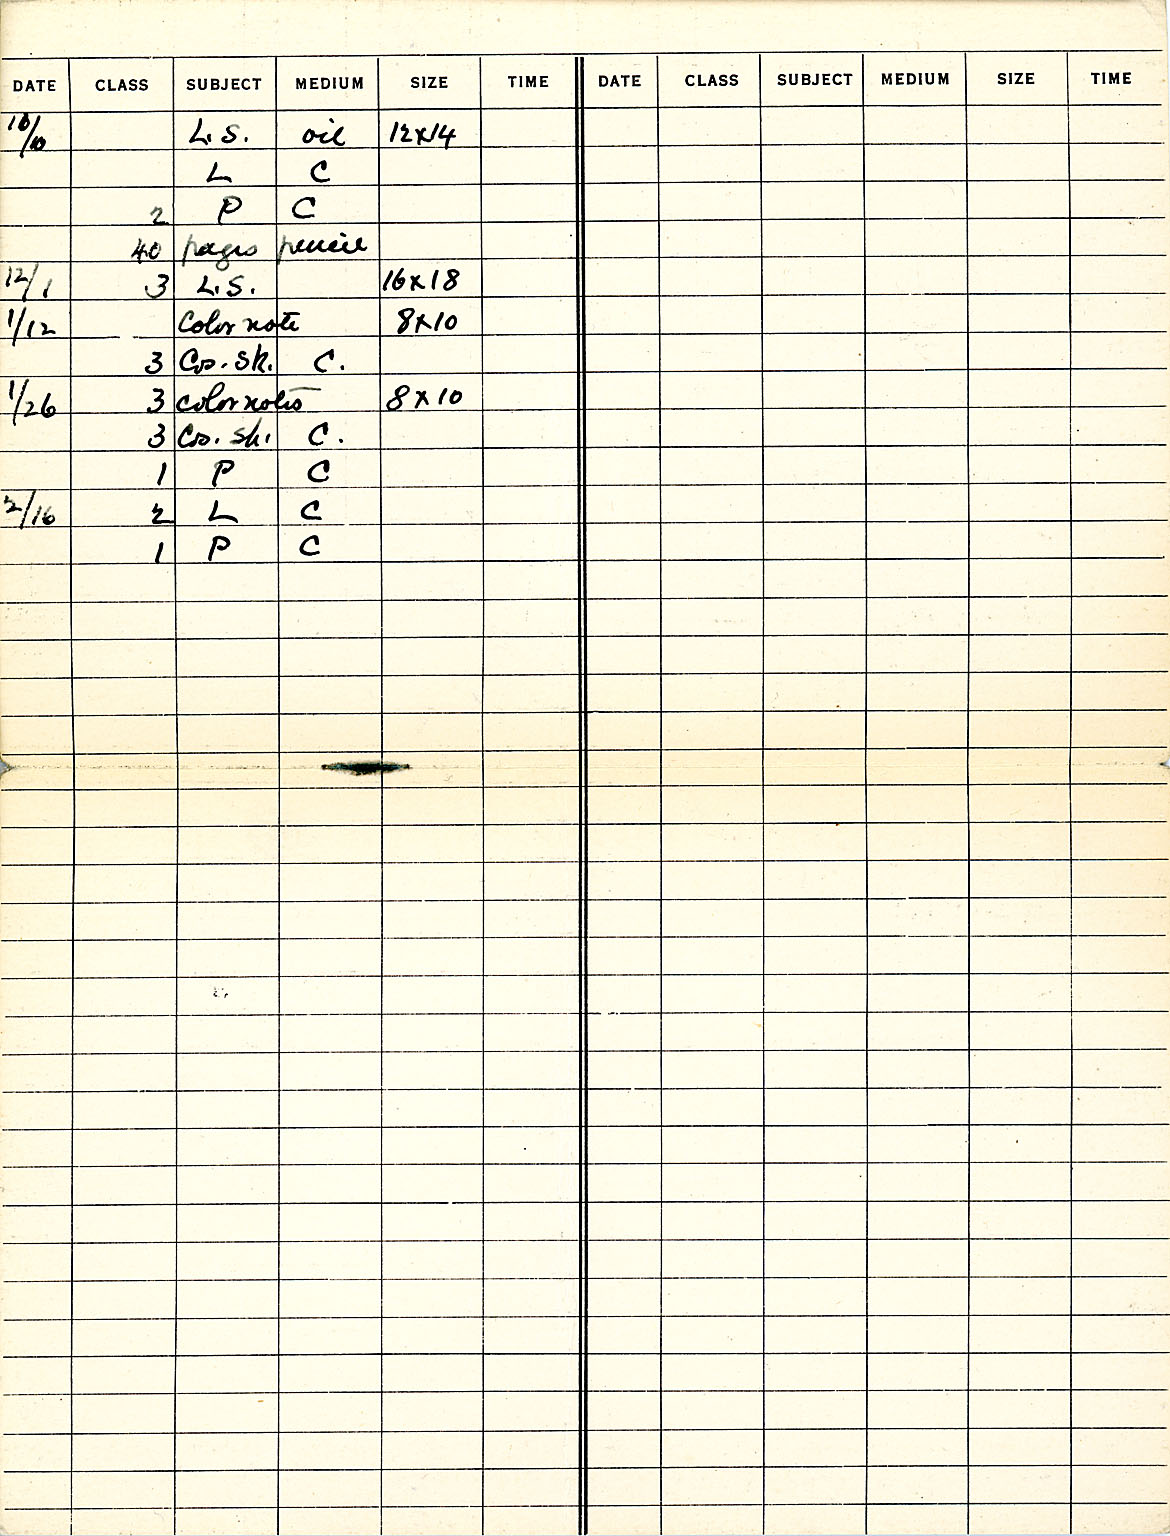 DATE CLASS SUBJECT MEDIUM SIZE TIME DATE CLASS SUBJECT MEDIUM SIZE TIME
10/10 L.S. oil 12x14
L C
2 P C
40 pages pencil
12/1 3 L.S. 16x18
1/12 Color note 8x10
3 Co. sk. C.
1/26 3 color notes 8x10
3 Co. sk. C.
1 P C
2/16 2 L C
1 P C